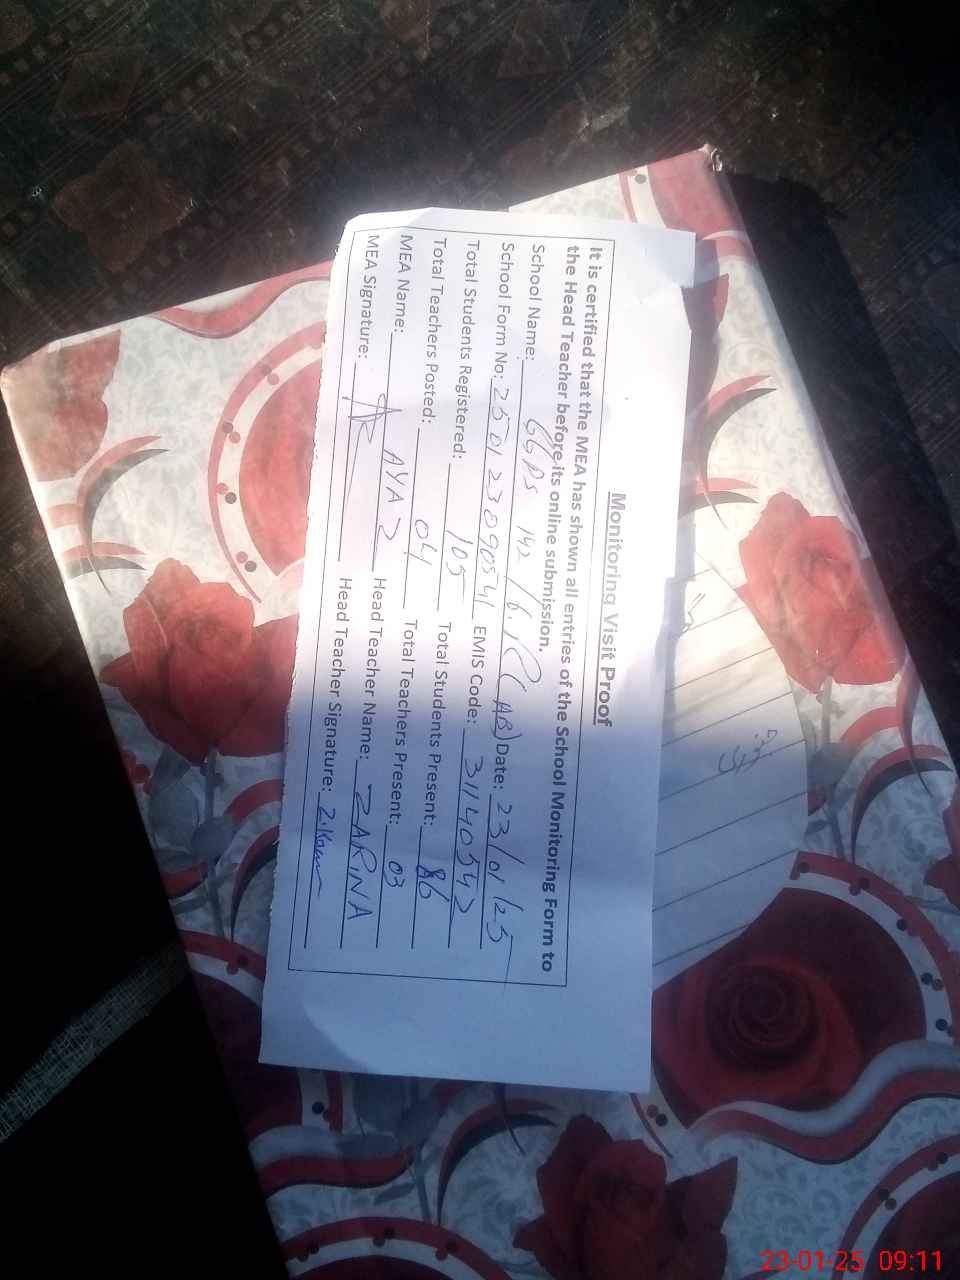 Monitoring Visit Proof
It is certified that the MEA has shown all entries of the School Monitoring Form to
the Head Teacher before its online submission.
School Name: GGPS 142/6.R(AB) Date: 23/01/25
School Form No: 250123090541 EMIS Code: 31140542
Total Students Registered: 105 Total Students Present: 86
Total Teachers Posted: 04 Total Teachers Present: 03
MEA Name: AYAZ Head Teacher Name: ZARINA
MEA Signature: Head Teacher Signature:
23-01-25 09:11